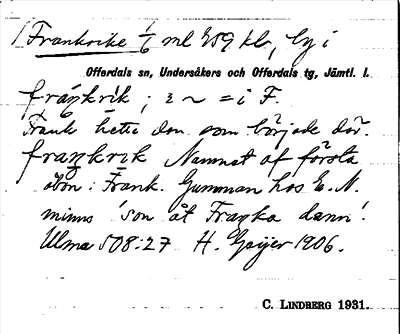 Frankrike 1/6 ml 359 kb, by i
Offerdals sn, Undersåkers och Offerdals tg, Jämtl. l.
frankrik ; i ~ = i F.
Frank hette den som började där.
frankrik Namnet af första
åbon: Frank. Gumman hos E. N.
minns 'son åt Franka dann'.
Ulma 508:27 H. Geijer 1906.
C. LINDBERG 1931.